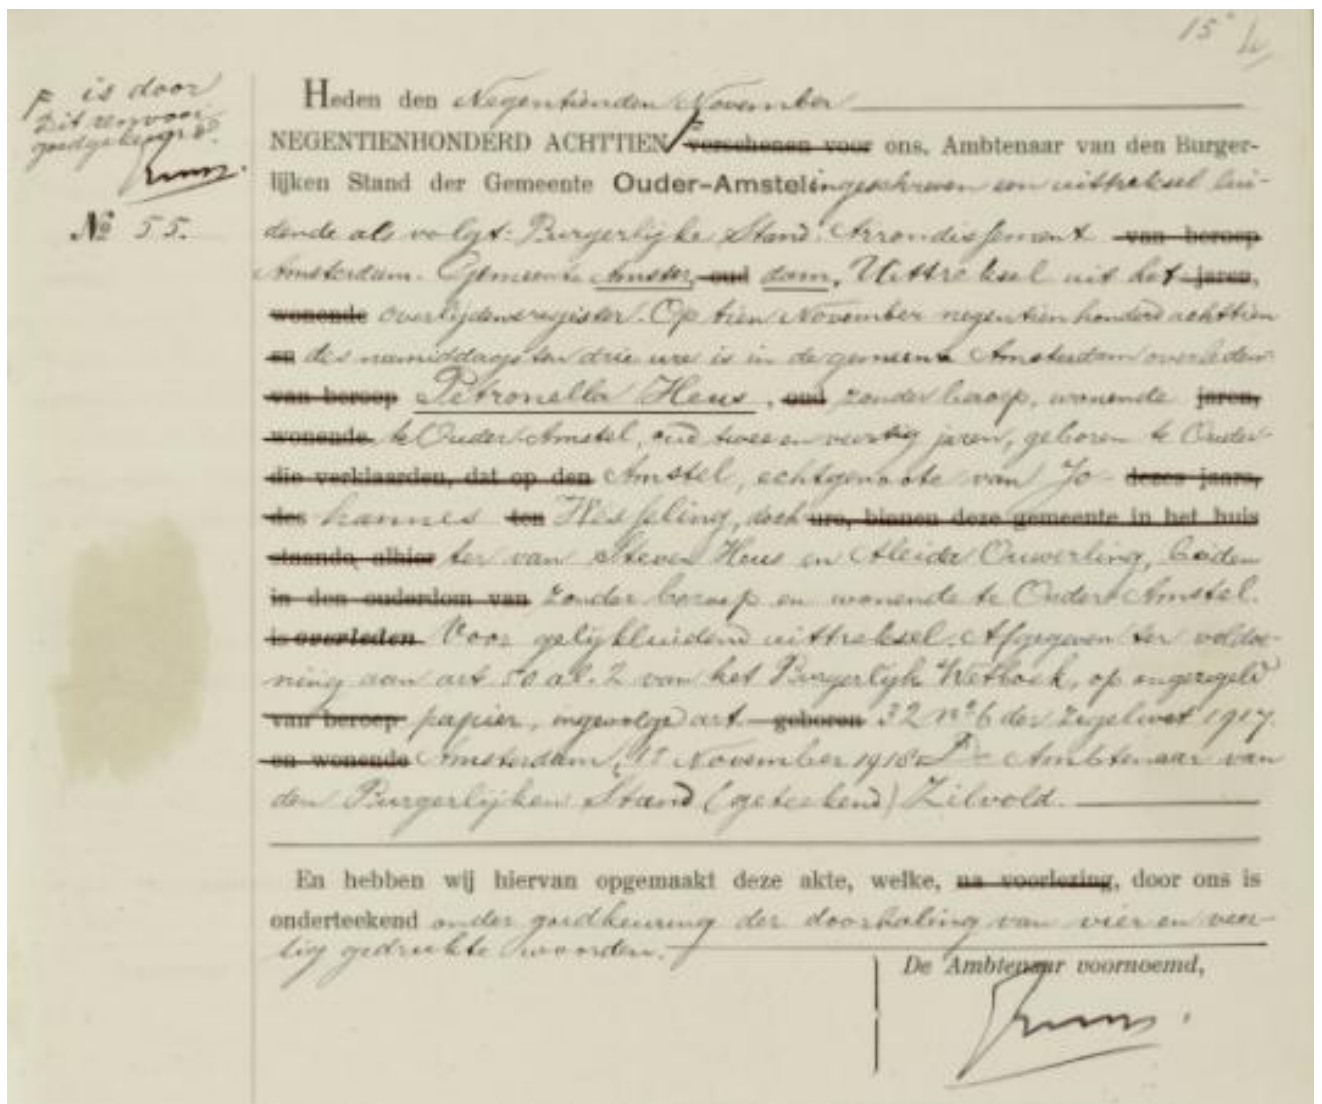 15
is door
dit renvooi
goedgekeurd
Heden den Negentienden November
NEGENTIENHONDERD ACHTTIEN verschenen voor ons, Ambtenaar van den Burger-
lijken Stand der Gemeente Ouder-Amstel ingeschreven een uittreksel lui-
No 55.
dende als volgt: Burgerlijke Stand. Arrondissement van beroep
Amsterdam. Gemeente Amster oud dam. Uittreksel uit het jaren,
wonende overlijdensregister. Op tien November negentienhonderd achttien
en des namiddags ten drie ure is in de gemeente Amsterdam overleden
van beroep Petronella Heus, oud zonder beroep, wonende jaren,
wonende te Ouder-Amstel, oud twee en veertig jaren, geboren te Ouder-
die verklaarden, dat op den Amstel, echtgenoote van Jo- dezes jaars,
des hannes ten Wesseling, doch ure, binnen deze gemeente in het huis
staande alhier ter van Steven Heus en Aleida Ouwerling, beiden
in den ouderdom van zonder beroep en wonende te Ouder-Amstel.
is overleden Voor gelijkluidend uittreksel. Afgegeven ter voldoe-
ning aan art. 50 al. 2 van het Burgerlijk Wetboek, op ongezegeld
van beroep papier, ingevolge art. geboren 32 no 6 der Zegelwet 1917.
en wonende Amsterdam, November 1918. Ambtenaar van
den Burgerlijken Stand (geteekend) Zilvold.
En hebben wij hiervan opgemaakt deze akte, welke, na voorlezing, door ons is
onderteekend onder goedkeuring der doorhaling van vier en veer-
tig gedrukte woorden.
De Ambtenaar voornoemd,